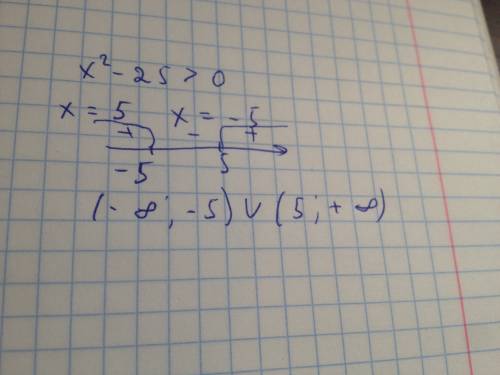 x² - 25 > 0
x = 5 x = -5
+ - +
-5 5
(-∞; -5) ∪ (5; +∞)